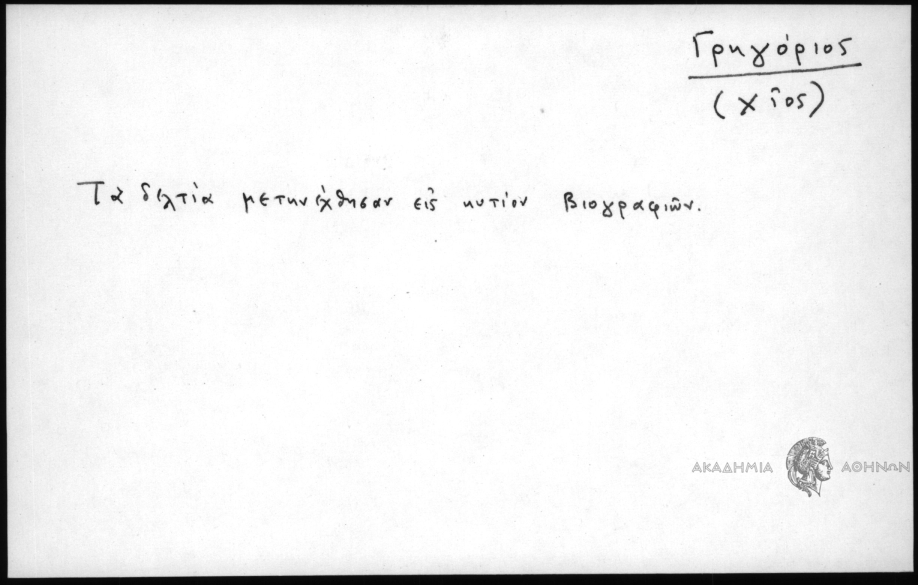 Γρηγόριος
(Χῖος)
Τὰ δελτία μετηνέχθησαν εἰς κυτίον Βιογραφιῶν.
ΑΚΑΔΗΜΙΑ ΑΘΗΝΩΝ